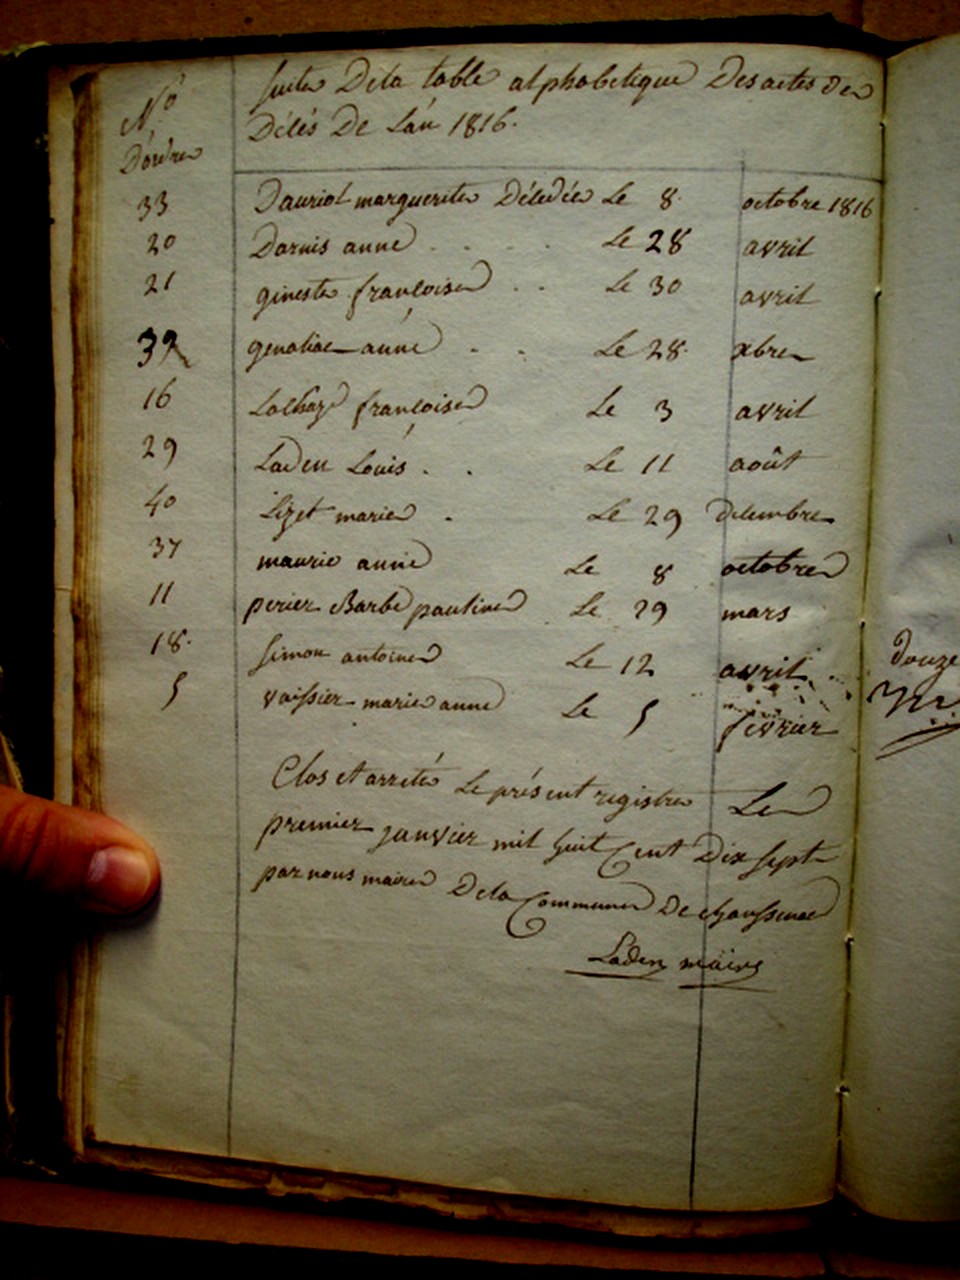 No
D'ordre
suite De la table alphabetique Des actes de
Décés De L'an 1816.
33 Dauriot marguerite Décedée Le 8 octobre 1816
20 Darnis anne . . . . Le 28 avril
21 gineste françoise . . Le 30 avril
39 anne . . Le 28 xbre
16 françoise Le 3 avril
29 Laden Louis . . Le 11 août
40 Lizet marie . Le 29 decembre
37 maurie anne Le 8 octobre
11 perier Barbe pauline Le 29 mars
18. Simon antoine Le 12 avril
5 vaissier marie anne Le 5 fevrier
Clos et arreté Le présent registre Le
premier janvier mil huit Cent Dix sept
par nous maire De la Commune De chaussenac
Laden maire
douze